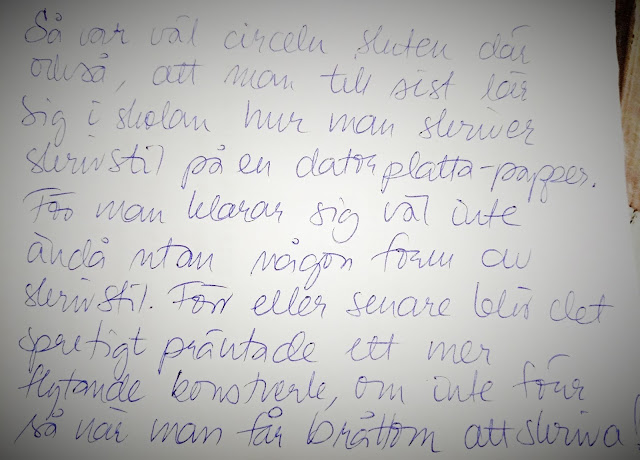 Så var väl circeln sluten där
också, att man till sist lär
sig i skolan hur man skriver
skrivstil på en datorplatta-papper.
För man klarar sig väl inte
ändå utan någon form av
skrivstil. Förr eller senare blir det
spretigt präntade ett mer
flytande konstverk, om inte förr
så när man får bråttom att skriva!